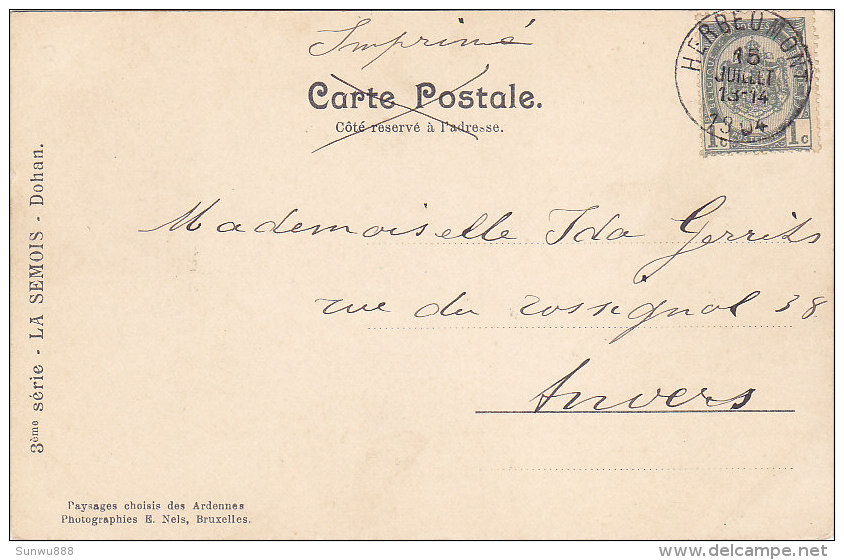 Imprimé
Carte Postale.
Côté reservé à l'adresse.
HERBEUMONT
15
JUILLET
13-14
1904
1c 1c
Mademoiselle Ida Gerrits
rue du rossignol 38
Anvers
3ème série - LA SEMOIS - Dohan.
Paysages choisis des Ardennes
Photographies E. Nels, Bruxelles.
Sunwu888
delcampe.net